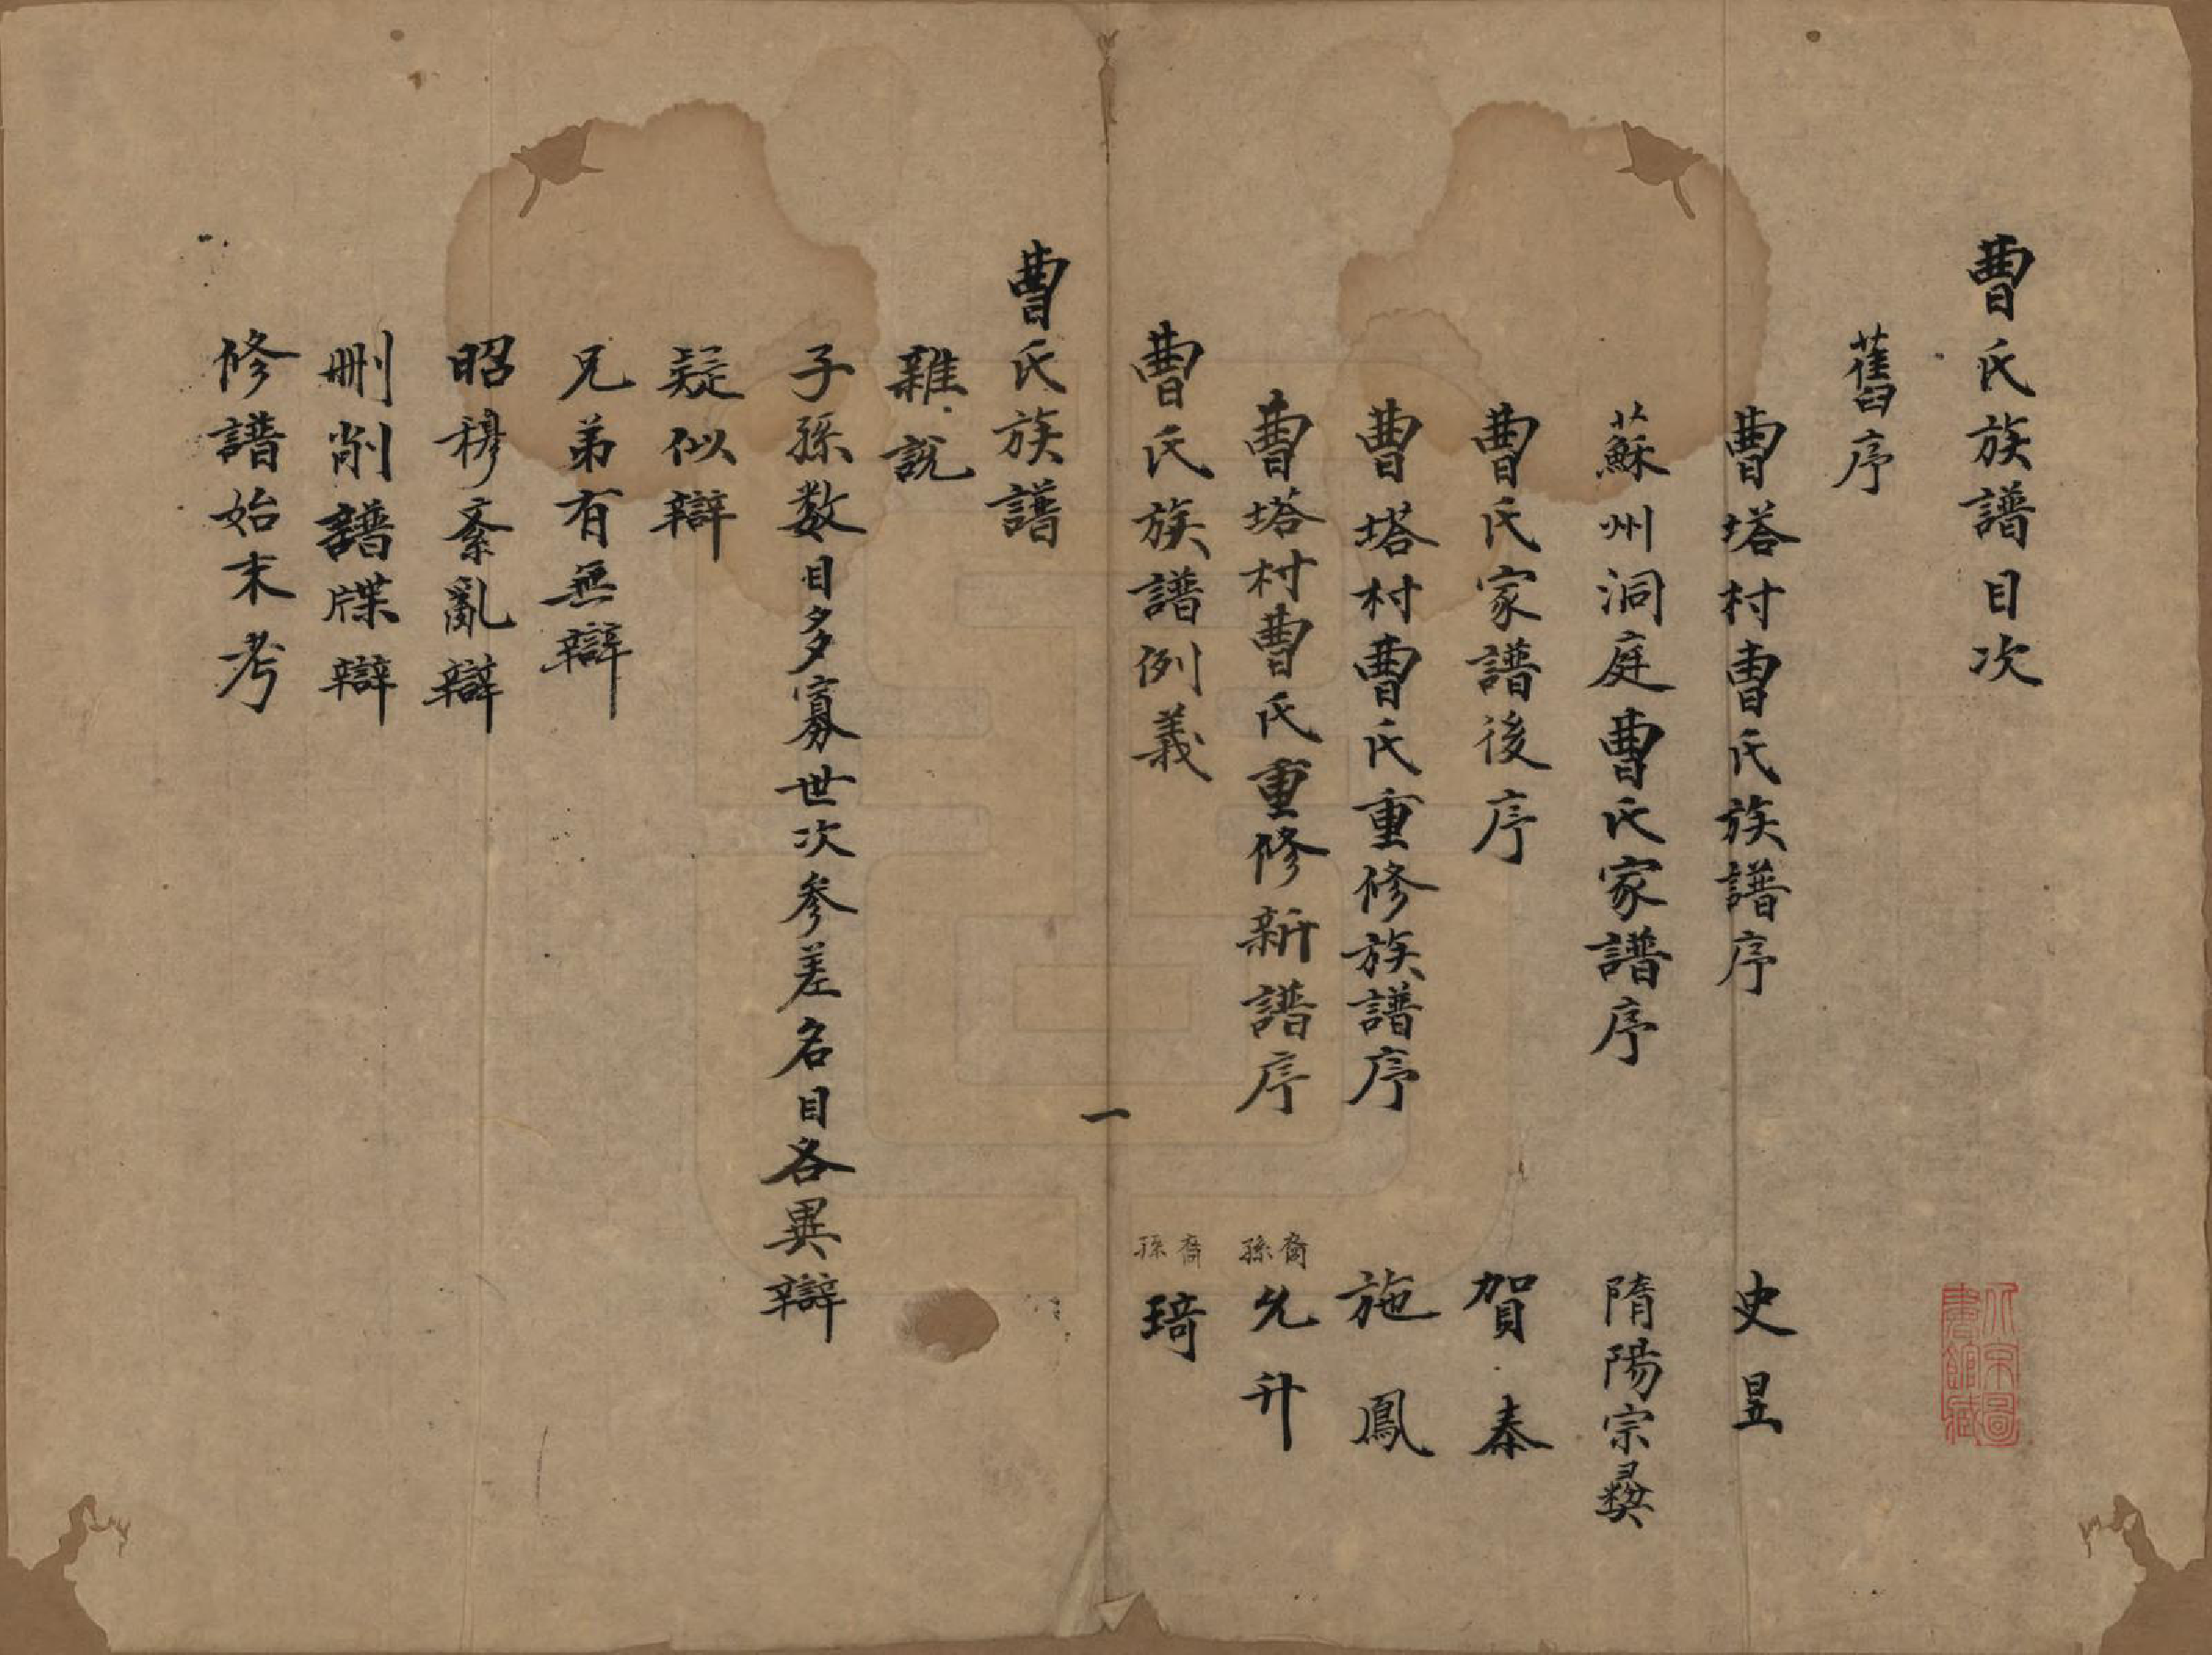 曹氏族譜目次
舊序
曹塔村曹氏族譜序 史昱
蘇州洞庭曹氏家譜序 隋陽宗彝
曹氏家譜後序 賀泰
曹塔村曹氏重修族譜序 施鳳
曹塔村曹氏重修新譜序 裔孫允升
曹氏族譜例義 裔孫琦
一
曹氏族譜
雜說
子孫数目多寡世次参差名目各異辯
疑似辯
兄弟有無辯
昭穆紊亂辯
刪削譜牒辯
修譜始末考